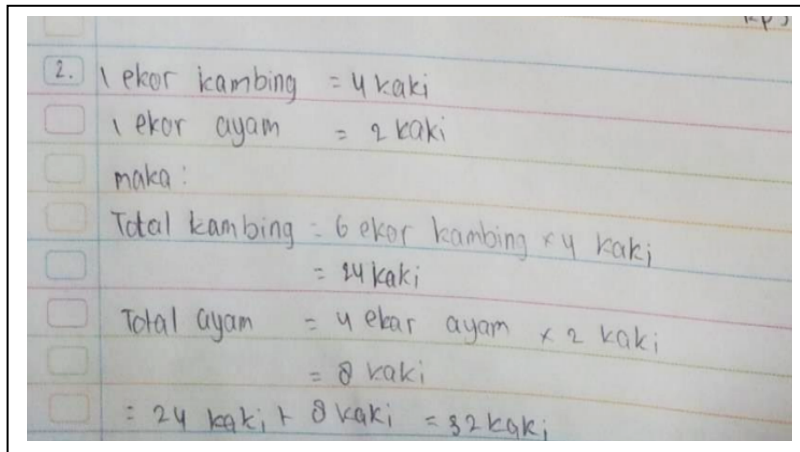 2. 1 ekor kambing = 4 kaki
1 ekor ayam = 2 kaki
maka :
Total kambing = 6 ekor kambing × 4 kaki
= 24 kaki
Total ayam = 4 ekar ayam × 2 kaki
= 8 kaki
= 24 kaki + 8 kaki = 32 kaki